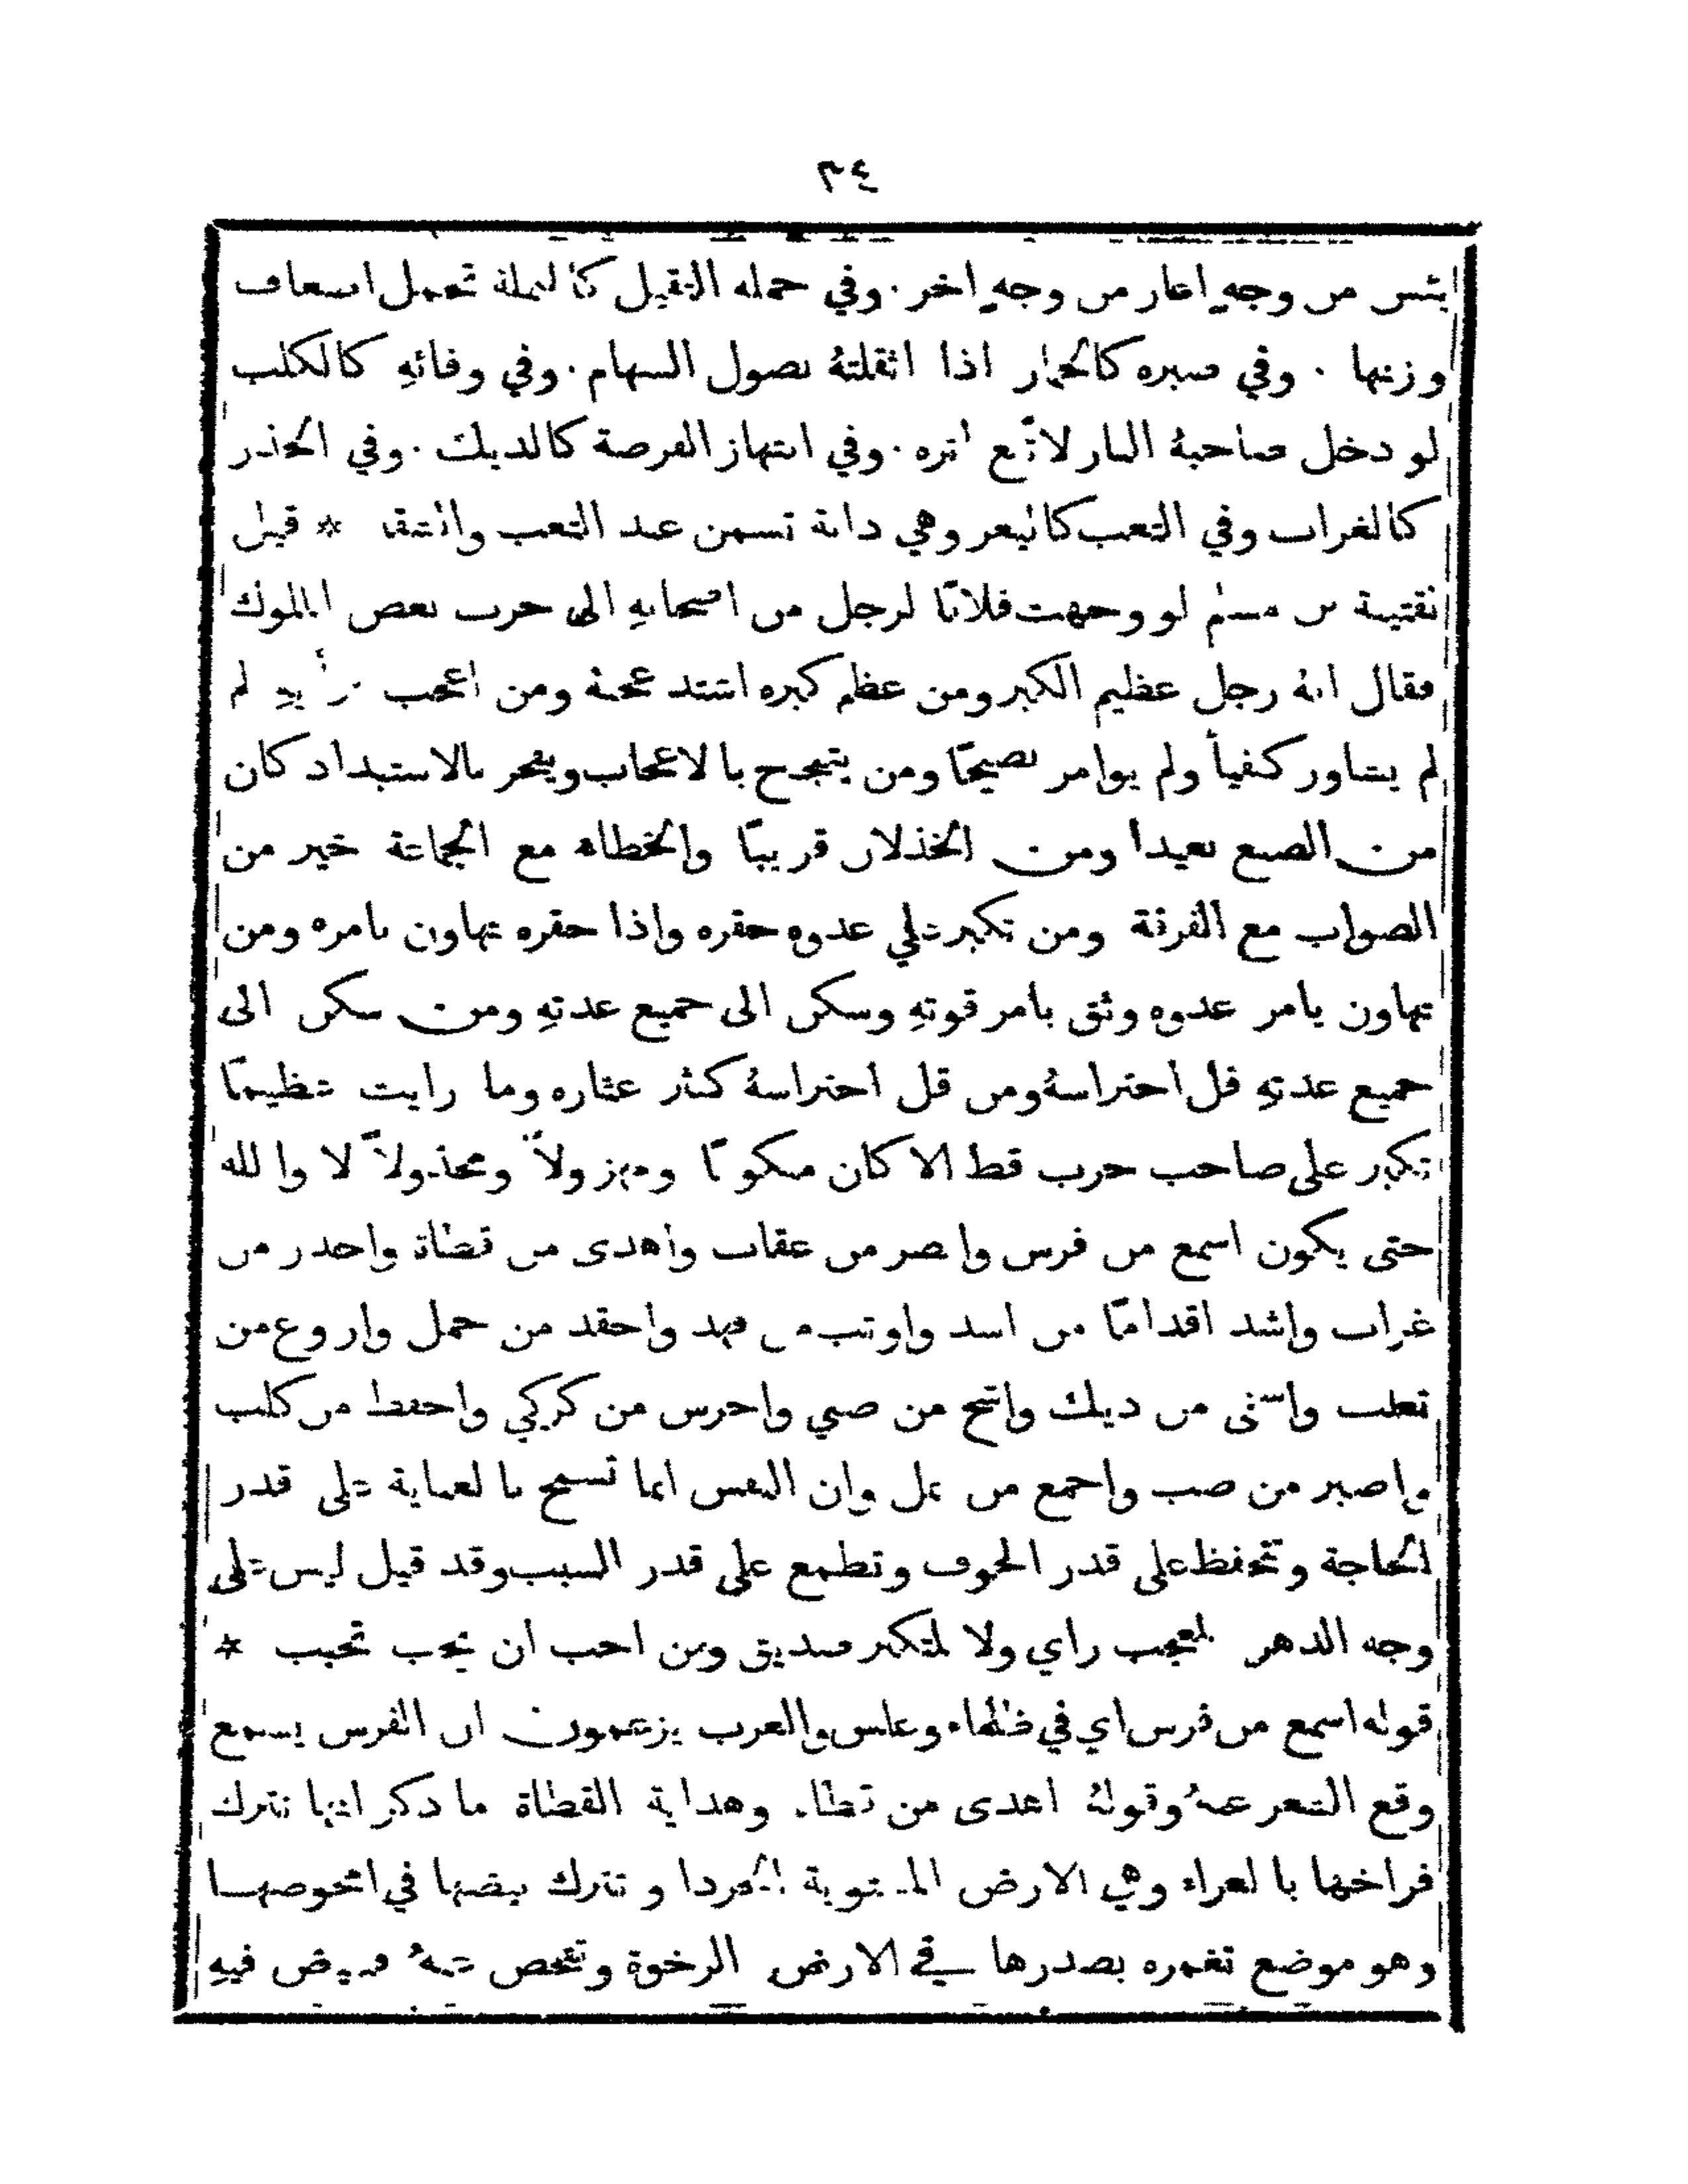 ٣٤
يئس من وجهٍ اغار من وجهٍ اخر . وفي حمله الثقيل كالنملة تحمل اضعاف
وزنها . وفي صبره كالحمار اذا اثقلتهُ نصول السهام . وفي وفائهِ كالكلب
لو دخل صاحبهُ النار لاتّبع اثره . وفي انتهاز الفرصة كالديك . وفي الحذر
كالغراب وفي التعب كاليعر وهي دابة تسمن عند التعب والشقا * قيل
لقتيبة بن مسلم لو وجهت فلانًا لرجل من اصحابهِ الى حرب بعض الملوك
فقال انهُ رجل عظيم الكبر ومن عظم كبره اشتد عجبهُ ومن اعجب برأيهِ لم
لم يشاور كفيأ ولم يوامر نصيحًا ومن يتبجح بالاعجاب ويفخر بالاستبداد كان
من الصنع بعيدا ومن الخذلان قريبًا والخطاء مع الجماعة خير من
الصواب مع الفرقة ومن تكبر على عدوه حقره واذا حقره تهاون بامره ومن
تهاون بامر عدوه وثق بامر قوتهِ وسكن الى جميع عدتهِ ومن سكن الى
جميع عدتهِ قل احتراسهُ ومن قل احتراسهُ كثر عثاره وما رايت عظيمًا
تكبر على صاحب حرب قط الا كان منكوبًا ومهزولاً ومخذولاً لا والله
حتى يكون اسمع من فرس وابصر من عقاب واهدى من قطاة واحذر من
غراب واشد اقدامًا من اسد واوثب من فهد واحقد من جمل واروغ من
ثعلب واسخى من ديك واشح من صبي واحرس من كركي واحفظ من كلب
واصبر من ضب واجمع من نمل وان النفس انما تسمح بالعناية على قدر
الحاجة وتتحفظ على قدر الخوف وتطمع على قدر السبب وقد قيل ليس على
وجه الدهر لمعجب راي ولا لمتكبر صديق ومن احب ان يحب تحبب *
قوله اسمع من فرس اي في ظلماء وغلس والعرب يزعمون ان الفرس يسمع
وقع الشعر عنهُ وقولهُ اهدى من قطاة وهداية القطاة ما ذكر انها تترك
فراخها بالعراء وهي الارض المستوية الجردا وتترك بيضها في افحوصها
وهو موضع تغمره بصدرها في الارض الرخوة وتفحص عنهُ فيهِ